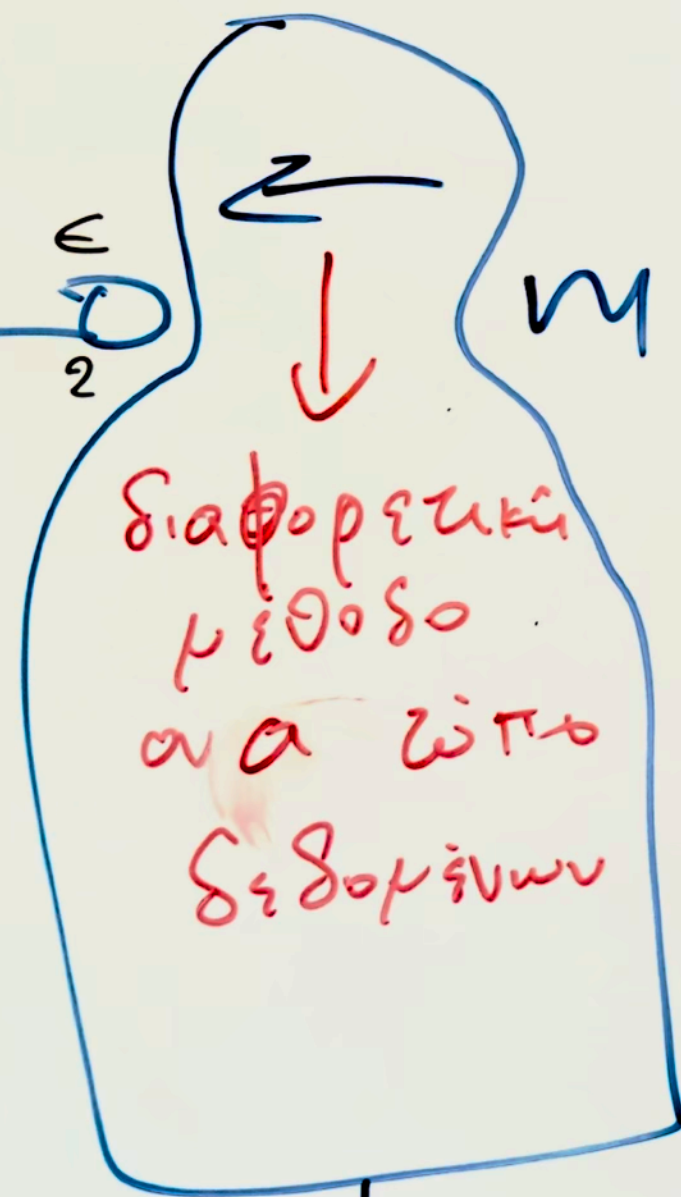 ε
2
διαφορετική
μέθοδο
ανα τύπο
δεδομένων